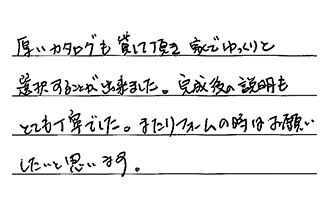 厚いカタログも貸して頂き 家でゆっくりと
選択することが出来ました。完成後の説明も
とても丁寧でした。またリフォームの時はお願い
したいと思います。